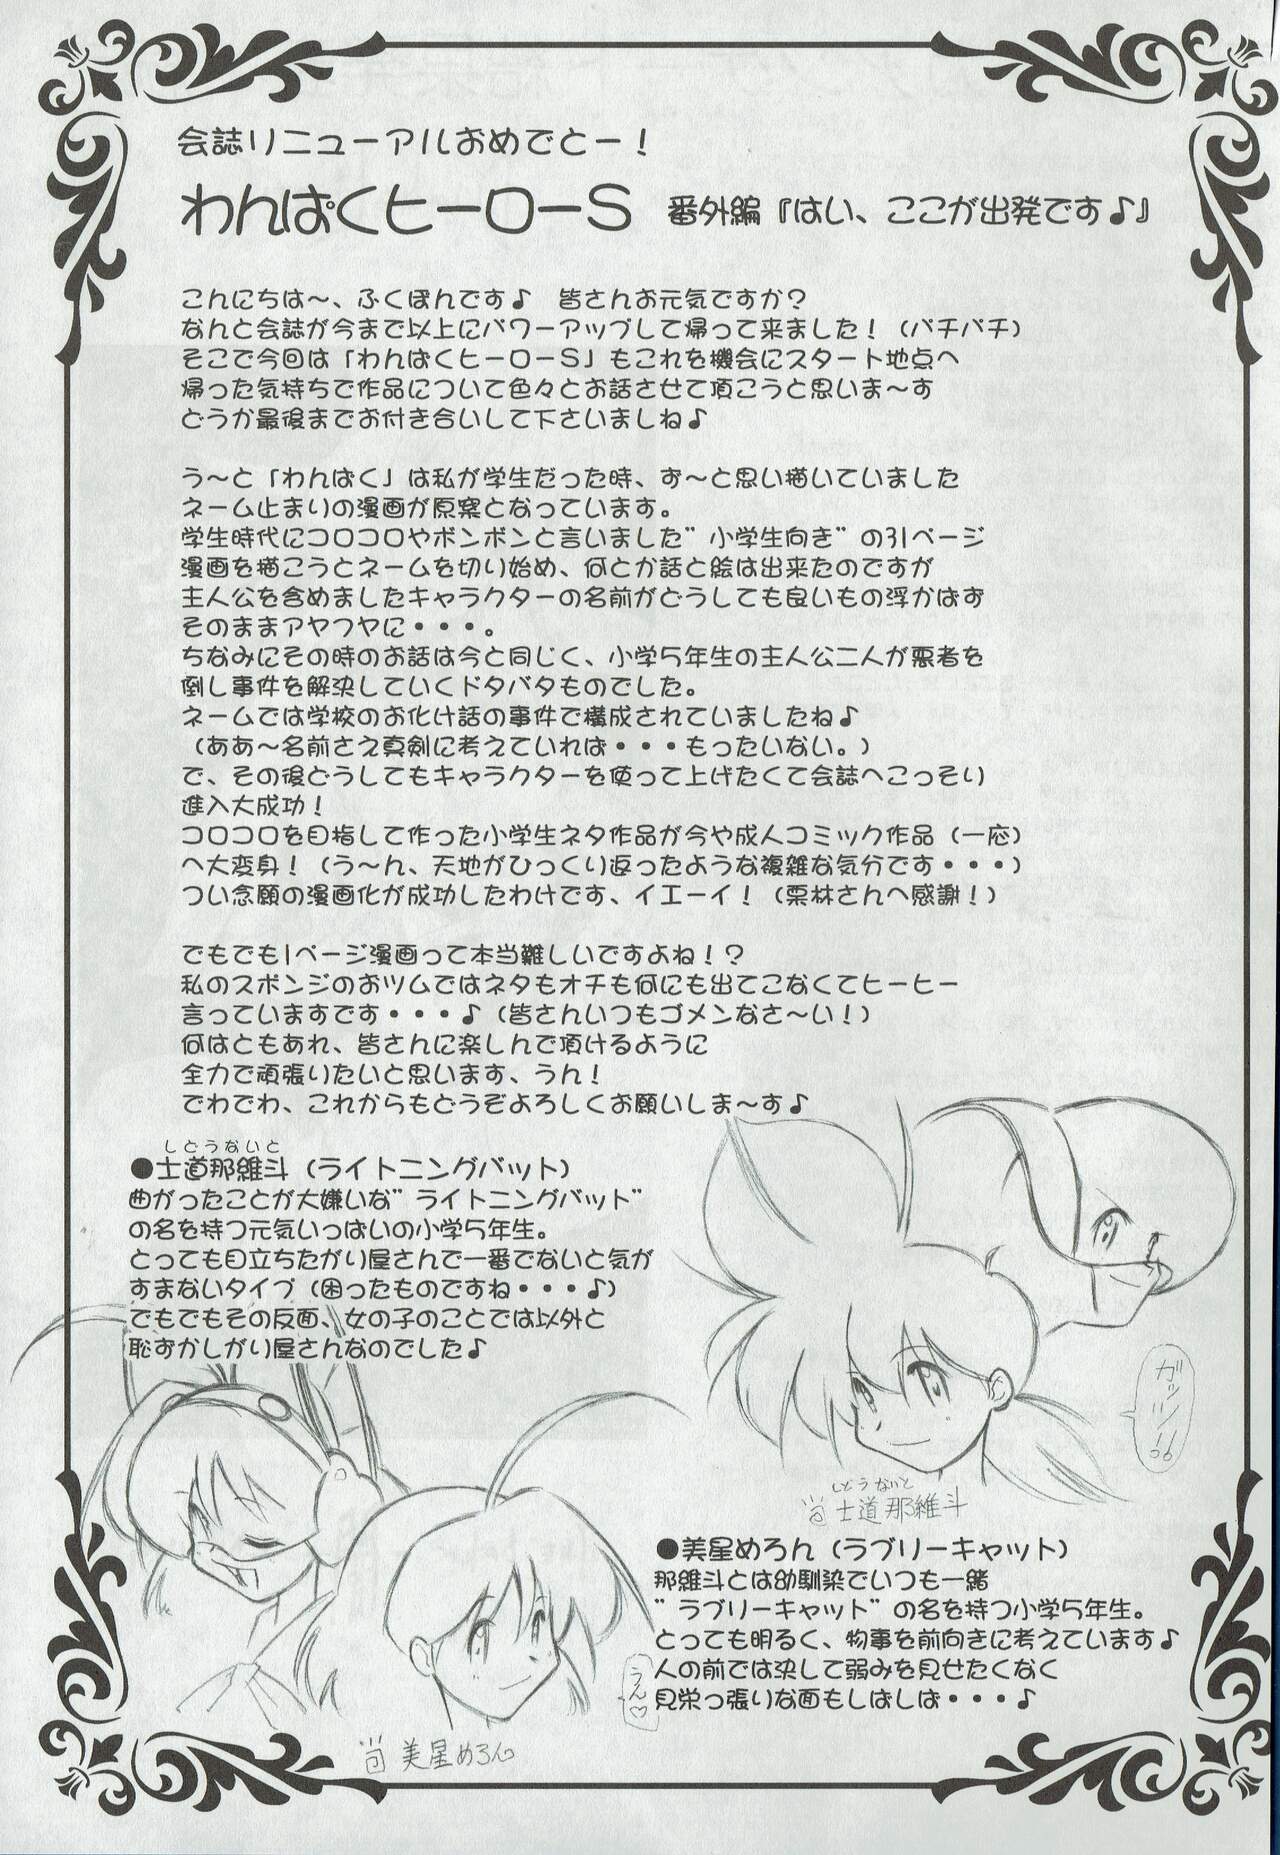 会誌リニューアルおめでとー！
わんぱくヒーローS 番外編『はい、ここが出発です♪』
こんにちは～、ふくぽんです♪　皆さんお元気ですか？
なんと会誌が今まで以上にパワーアップして帰って来ました！（パチパチ）
そこで今回は「わんぱくヒーローS」もこれを機会にスタート地点へ
帰った気持ちで作品について色々とお話させて頂こうと思いま～す
どうか最後までお付き合いして下さいましね♪
う～と「わんぱく」は私が学生だった時、ず～と思い描いていました
ネーム止まりの漫画が原案となっています。
学生時代にコロコロやボンボンと言いました”小学生向き”の31ページ
漫画を描こうとネームを切り始め、何とか話と絵は出来たのですが
主人公を含めましたキャラクターの名前がどうしても良いもの浮かばず
そのままアヤフヤに・・・。
ちなみにその時のお話は今と同じく、小学5年生の主人公二人が悪者を
倒し事件を解決していくドタバタものでした。
ネームでは学校のお化け話の事件で構成されていましたね♪
（ああ～名前さえ真剣に考えていれば・・・もったいない。）
で、その後どうしてもキャラクターを使って上げたくて会誌へこっそり
進入大成功！
コロコロを目指して作った小学生ネタ作品が今や成人コミック作品（一応）
へ大変身！（う～ん、天地がひっくり返ったような複雑な気分です・・・）
つい念願の漫画化が成功したわけです、イエーイ！（栗林さんへ感謝！）
でもでも1ページ漫画って本当難しいですよね！？
私のスポンジのおツムではネタもオチも何にも出てこなくてヒーヒー
言っていますです・・・♪（皆さんいつもゴメンなさ～い！）
何はともあれ、皆さんに楽しんで頂けるように
全力で頑張りたいと思います、うん！
でわでわ、これからもどうぞよろしくお願いしま～す♪
しどうないと
●士道那維斗（ライトニングバット）
曲がったことが大嫌いな”ライトニングバット”
の名を持つ元気いっぱいの小学5年生。
とっても目立ちたがり屋さんで一番でないと気が
すまないタイプ（困ったものですね・・・♪）
でもでもその反面、女の子のことでは以外と
恥ずかしがり屋さんなのでした♪
ガッツ!!
しどうないと
士道那維斗
●美星めろん（ラブリーキャット）
那維斗とは幼馴染でいつも一緒
”ラブリーキャット”の名を持つ小学5年生。
とっても明るく、物事を前向きに考えています♪
人の前では決して弱みを見せたくなく
見栄っ張りな面もしばしば・・・♪
うん♡
美星めろん